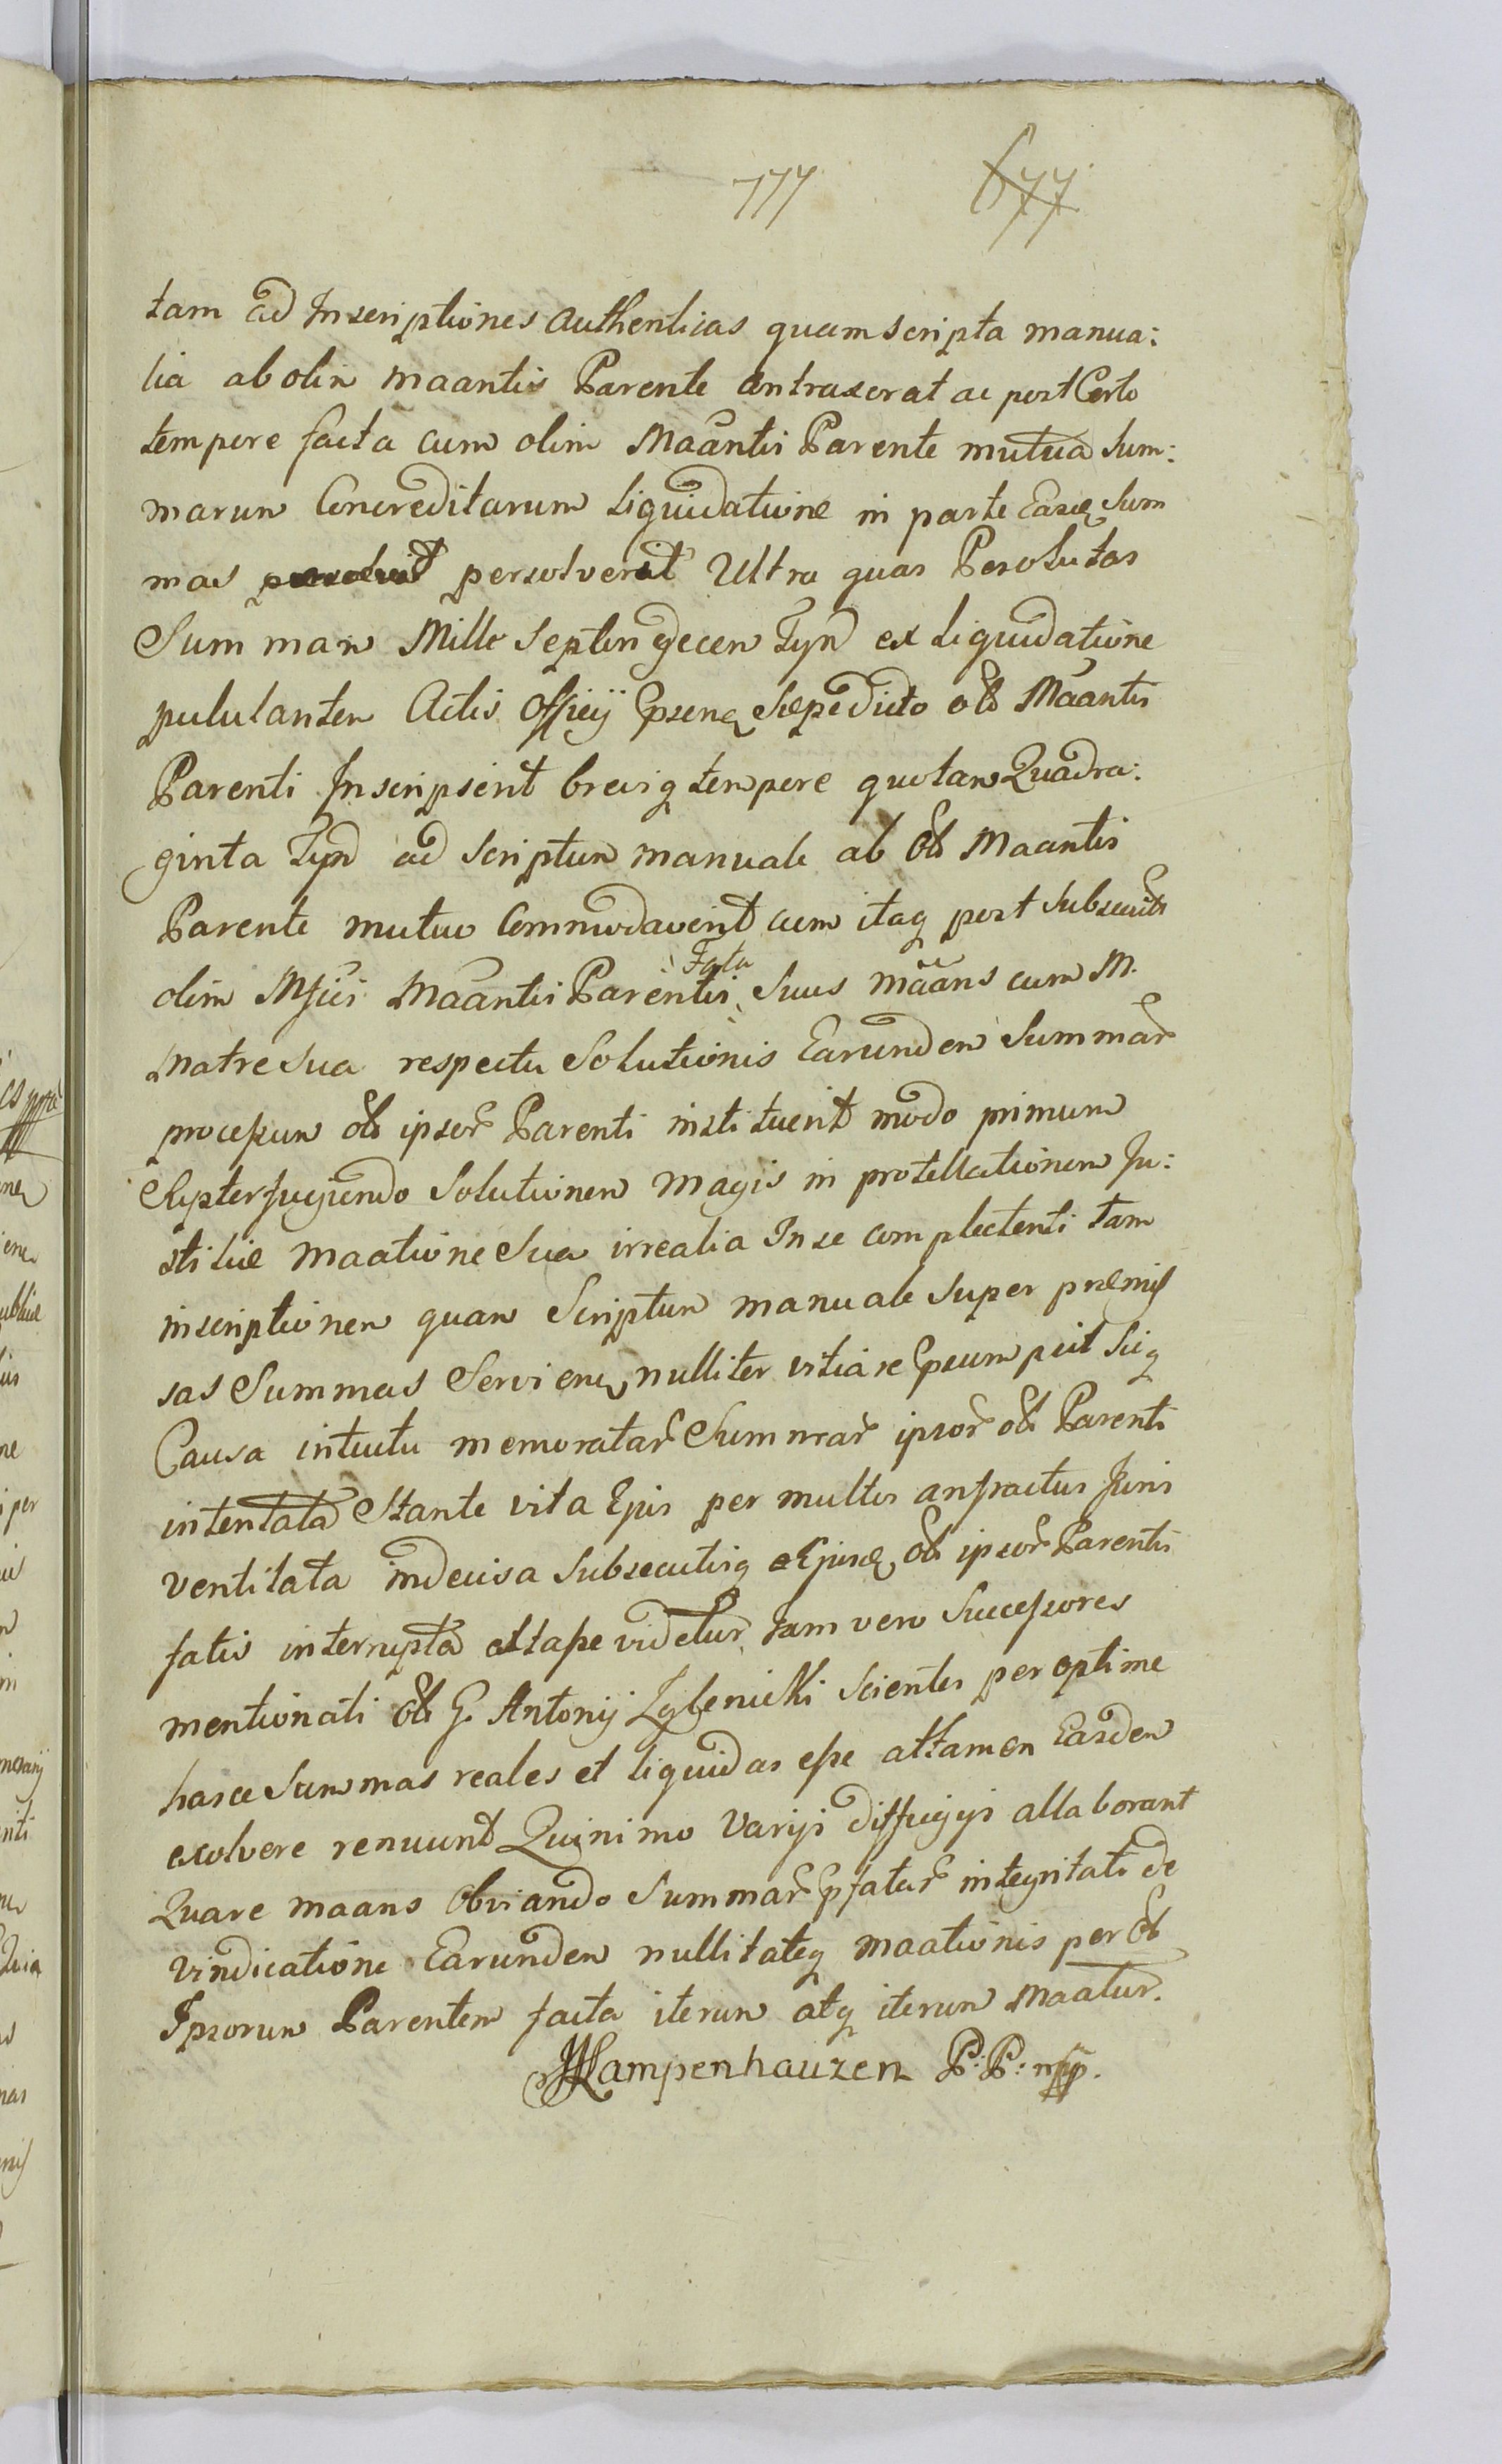 777 677
tam ad Inscriptiones Authenticas quam scripta manua:
lia ab olim Maantis Parente contraxerat ac post Certo
tempore facta cum olim Maantis Parente mutua sum:
marum Concreditarum Liquidatione in parte Easq Sum
mas persolverit Ultra quas Persolutas
Summam Mille Septingecen Tyn ex Liquidatione
pululantem Actis Officij sæpedicto olb Maantis
Parenti Inscripserit breviq tempore quotam Quadra:
ginta Tyn ad Scriptum manuale ab olb Maantis
Parente mutuo Commodaverit cum itaq post subsecuta
olim Mfici Maantis Parentis Fata Suus Maans cum M.
Matre sua respectu Solutionis Earundem Summar
processum olb ipsor Parenti instituerit modo primum
Supterfugiendo Solutionem magis in protellationem Ju:
stitiæ Maatione Sua irrealia In se complectenti tam
inscriptionem quam Scriptum manuale super præmis
sas Summas Servien nulliter vitiare sicq
Causa intuitu memoratar Summar ipsor olb Parenti
intentata Stante vita Ejus per multos anfractus Juris
ventilata indecisa Subsecutisq Ejusq olb ipsor Parentis
fatis interrupta videtur Jam vero Successores
mentionati olb G. Antonij Zglenicki Scientes per optime
hasce Summas reales et liquidas esse attamen Easdem
exolvere renuunt Quinimo Varijs diffugijs allaborant
Quare Maans Obviando Summar pfatar integritati de
vindicatione Earundem nullitateq Maationis per olb
Ipsorum Parentem facta iterum atq iterum Maatur.
Kampenhauzen P: P: mpp.